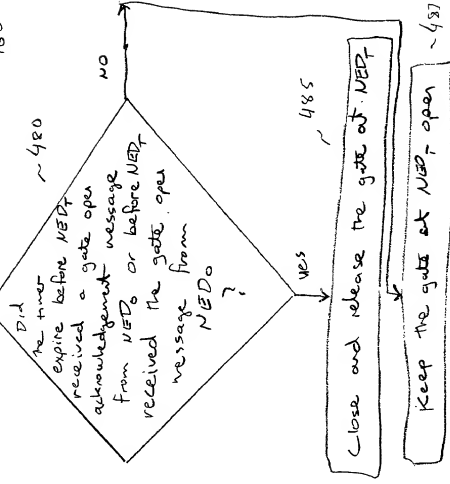 Did
the timer
expire before NED_T
received a gate open
acknowledgement message
from NED_O or before NED_T
received the gate open
message from
NED_O
?
~480
NO
YES
~485
Close and release the gate at NED_T
~487
Keep the gate at NED_T open